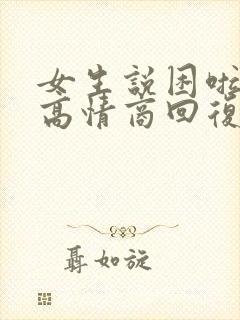 女生説困啦
高情商回復
聶如旋